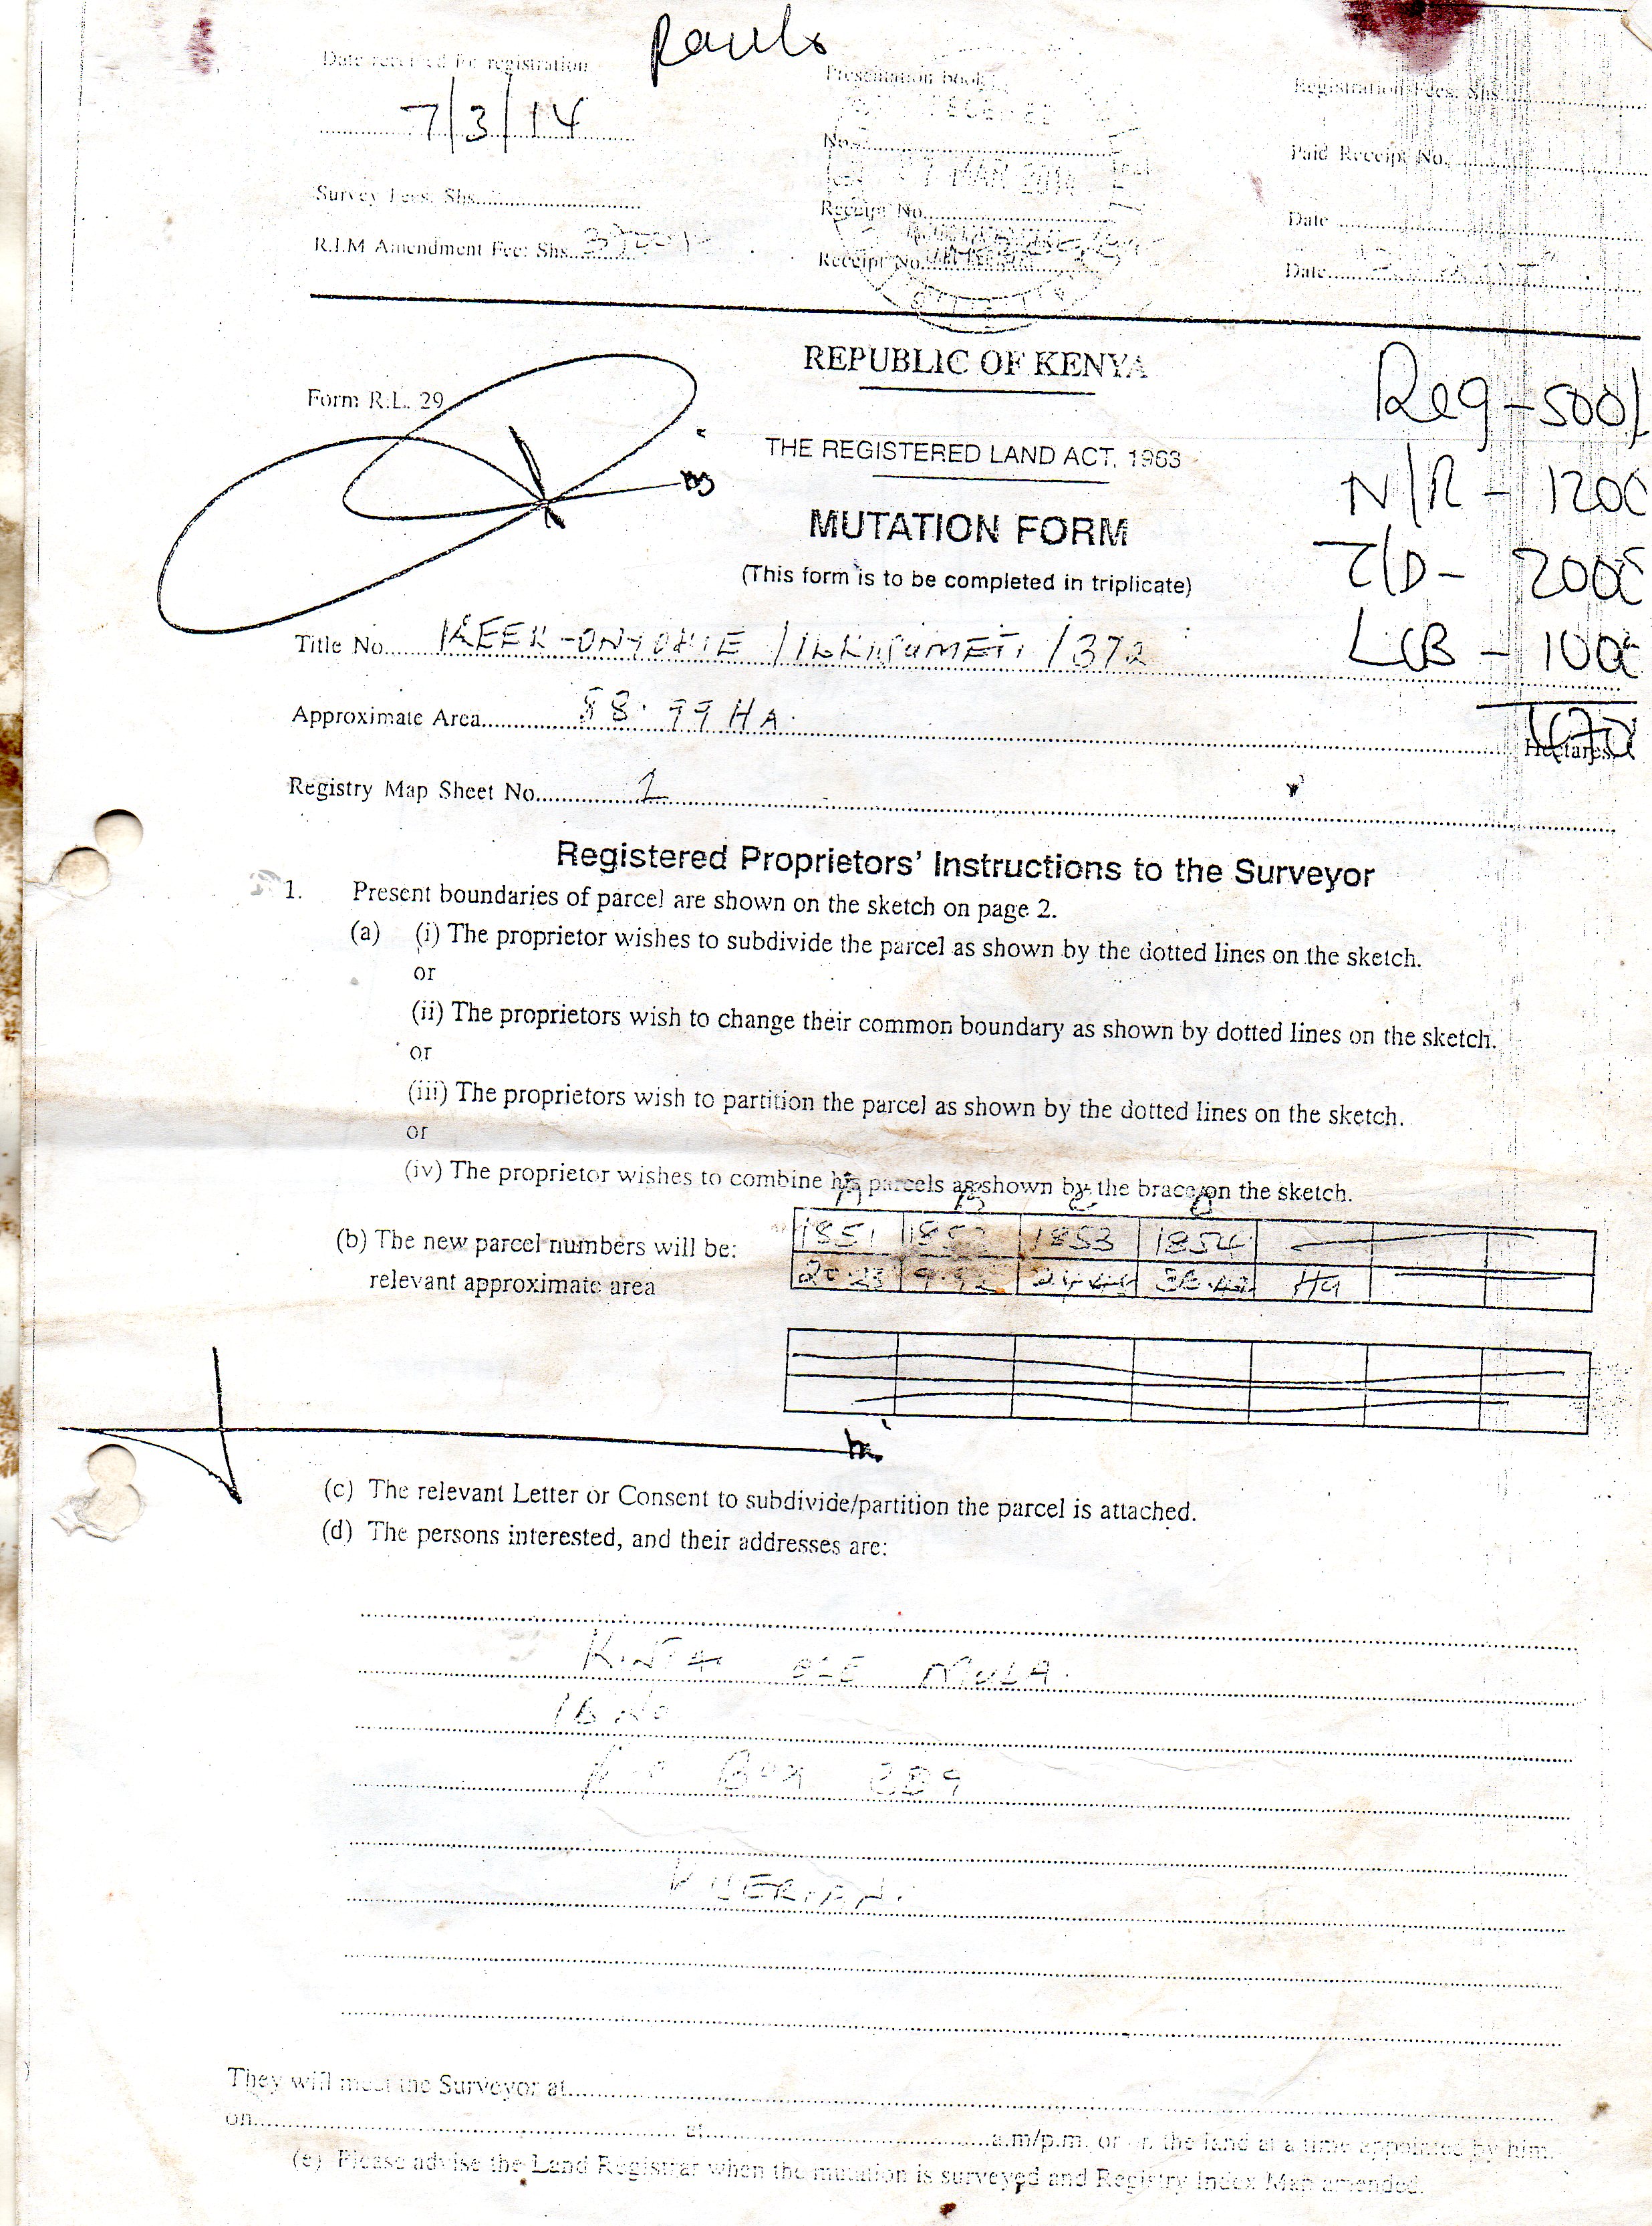 Rauls
Date received for registration
Presentation book
Registration Fees: Shs
7/3/14
No.
Paid Receipt No.
7 MAR 2014
Survey Fees: Shs
Receipt No.
Date
R.I.M Amendment Fee: Shs
Receipt No.
Date
REPUBLIC OF KENYA
Form R.L. 29
Reg - 500/
THE REGISTERED LAND ACT, 1963
N/R - 1200
MUTATION FORM
T/D - 2000
(This form is to be completed in triplicate)
Title No. KEEK-ONYOKIE / /372
LCB - 1000
Approximate Area 88.99 HA. Hectares
Registry Map Sheet No. 1
Registered Proprietors' Instructions to the Surveyor
1. Present boundaries of parcel are shown on the sketch on page 2.
(a) (i) The proprietor wishes to subdivide the parcel as shown by the dotted lines on the sketch.
or
(ii) The proprietors wish to change their common boundary as shown by dotted lines on the sketch.
or
(iii) The proprietors wish to partition the parcel as shown by the dotted lines on the sketch.
or
(iv) The proprietor wishes to combine his parcels as shown by the brace on the sketch.
A B C D
(b) The new parcel numbers will be: 1851 1852 1853 1854
relevant approximate area 20.23 Ha
(c) The relevant Letter or Consent to subdivide/partition the parcel is attached.
(d) The persons interested, and their addresses are:
OLE MULA.
ID No
Box
They will meet the Surveyor at
on at a.m/p.m. or on the land at a time appointed by him.
(e) Please advise the Land Registrar when the mutation is surveyed and Registry Index Map amended.